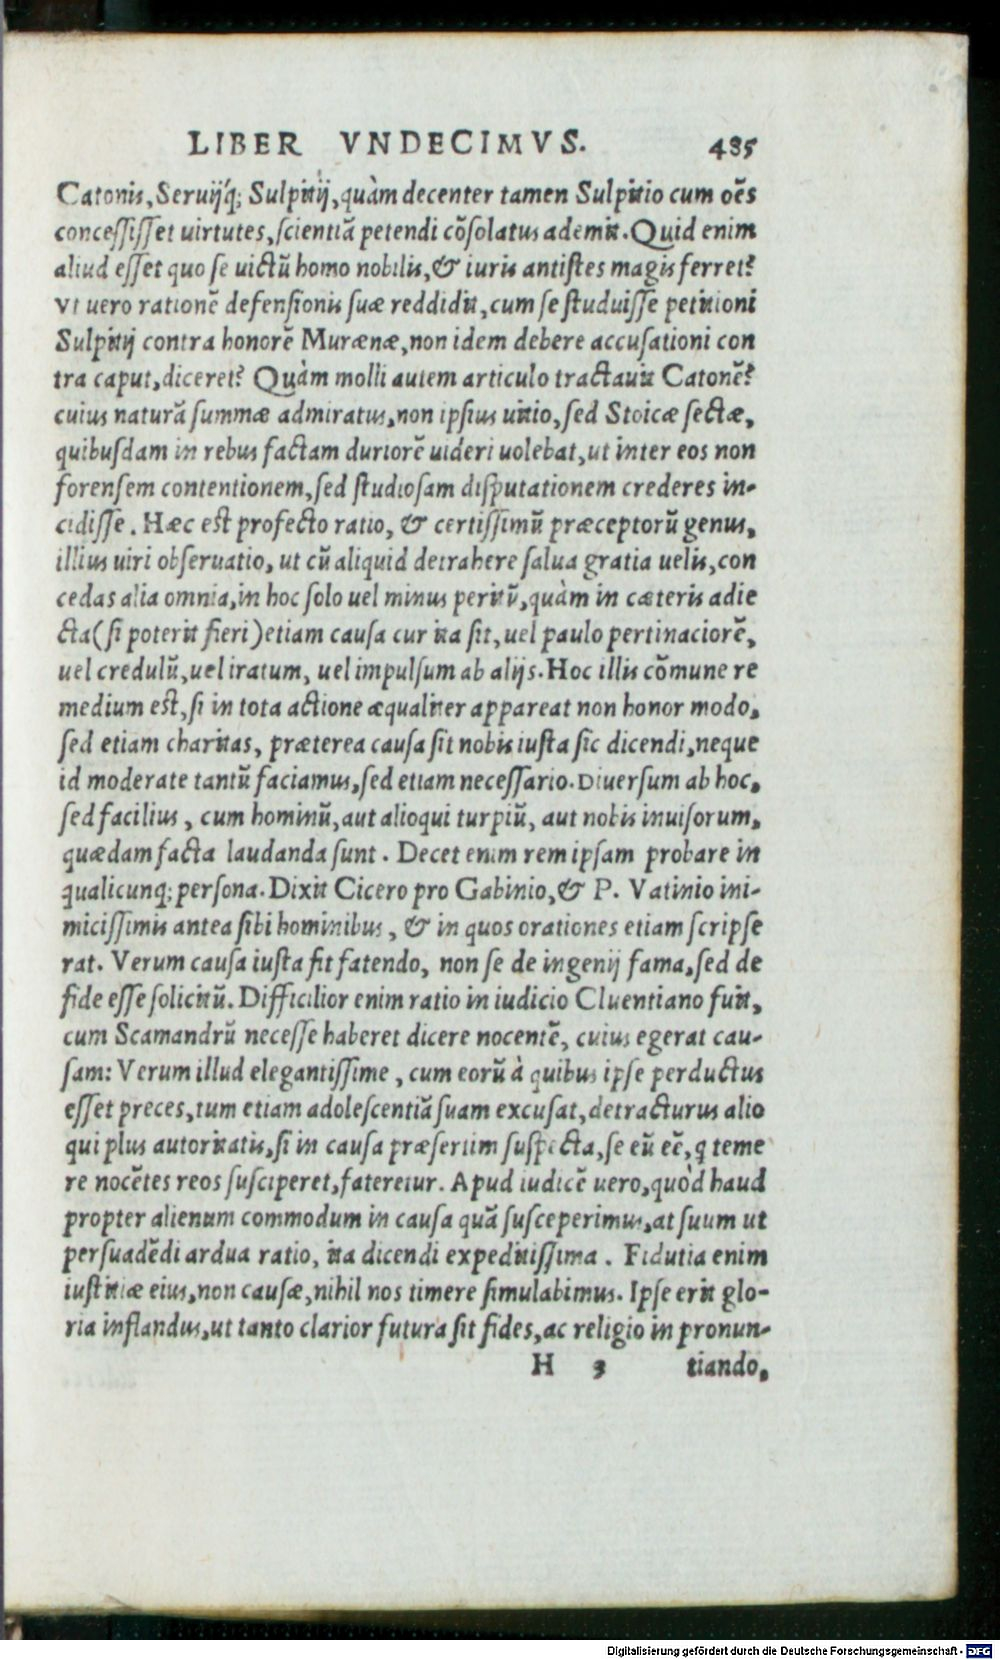 LIBER VNDECIMVS. 485
Catonis, Seruijq́; Sulpitij, quàm decenter tamen Sulpitio cum oẽs
concessisset uirtutes, scientiã petendi cõsolatus ademit. Quid enim
aliud esset quo se uictũ homo nobilis, & iuris antistes magis ferret?
Vt uero rationẽ defensionis suæ reddidit, cum se studuisse petitioni
Sulpitij contra honorẽ Murænæ, non idem debere accusationi con
tra caput, diceret? Quàm molli autem articulo tractauit Catonẽ?
cuius naturã summæ admiratus, non ipsius uitio, sed Stoicæ sectæ,
quibusdam in rebus factam duriorẽ uideri uolebat, ut inter eos non
forensem contentionem, sed studiosam disputationem crederes in-
cidisse. Hæc est profecto ratio, & certissimũ præceptorũ genus,
illius uiri obseruatio, ut cũ aliquid detrahere salua gratia uelis, con
cedas alia omnia, in hoc solo uel minus peritũ, quàm in cæteris adie
cta (si poterit fieri) etiam causa cur ita sit, uel paulo pertinaciorẽ,
uel credulũ, uel iratum, uel impulsum ab alijs. Hoc illis cõmune re
medium est, si in tota actione æqualiter appareat non honor modo,
sed etiam charitas, præterea causa sit nobis iusta sic dicendi, neque
id moderate tantũ faciamus, sed etiam necessario. Diuersum ab hoc,
sed facilius, cum hominũ, aut alioqui turpiũ, aut nobis inuisorum,
quædam facta laudanda sunt. Decet enim rem ipsam probare in
qualicunq; persona. Dixit Cicero pro Gabinio, & P. Vatinio ini-
micissimis antea sibi hominibus, & in quos orationes etiam scripse
rat. Verum causa iusta fit fatendo, non se de ingenij fama, sed de
fide esse solicitũ. Difficilior enim ratio in iudicio Cluentiano fuit,
cum Scamandrũ necesse haberet dicere nocentẽ, cuius egerat cau-
sam: Verum illud elegantissime, cum eorũ à quibus ipse perductus
esset preces, tum etiam adolescentiã suam excusat, detracturus alio
qui plus autoritatis, si in causa præsertim suspecta, se eũ eẽ, q teme
re nocẽtes reos susciperet, fateretur. Apud iudicẽ uero, quòd haud
propter alienum commodum in causa quã susceperimus, at suum ut
persuadẽdi ardua ratio, ita dicendi expeditissima. Fidutia enim
iustitiæ eius, non causæ, nihil nos timere simulabimus. Ipse erit glo-
ria inflandus, ut tanto clarior futura sit fides, ac religio in pronun-
H 3 tiando,
Digitalisierung gefördert durch die Deutsche Forschungsgemeinschaft - DFG